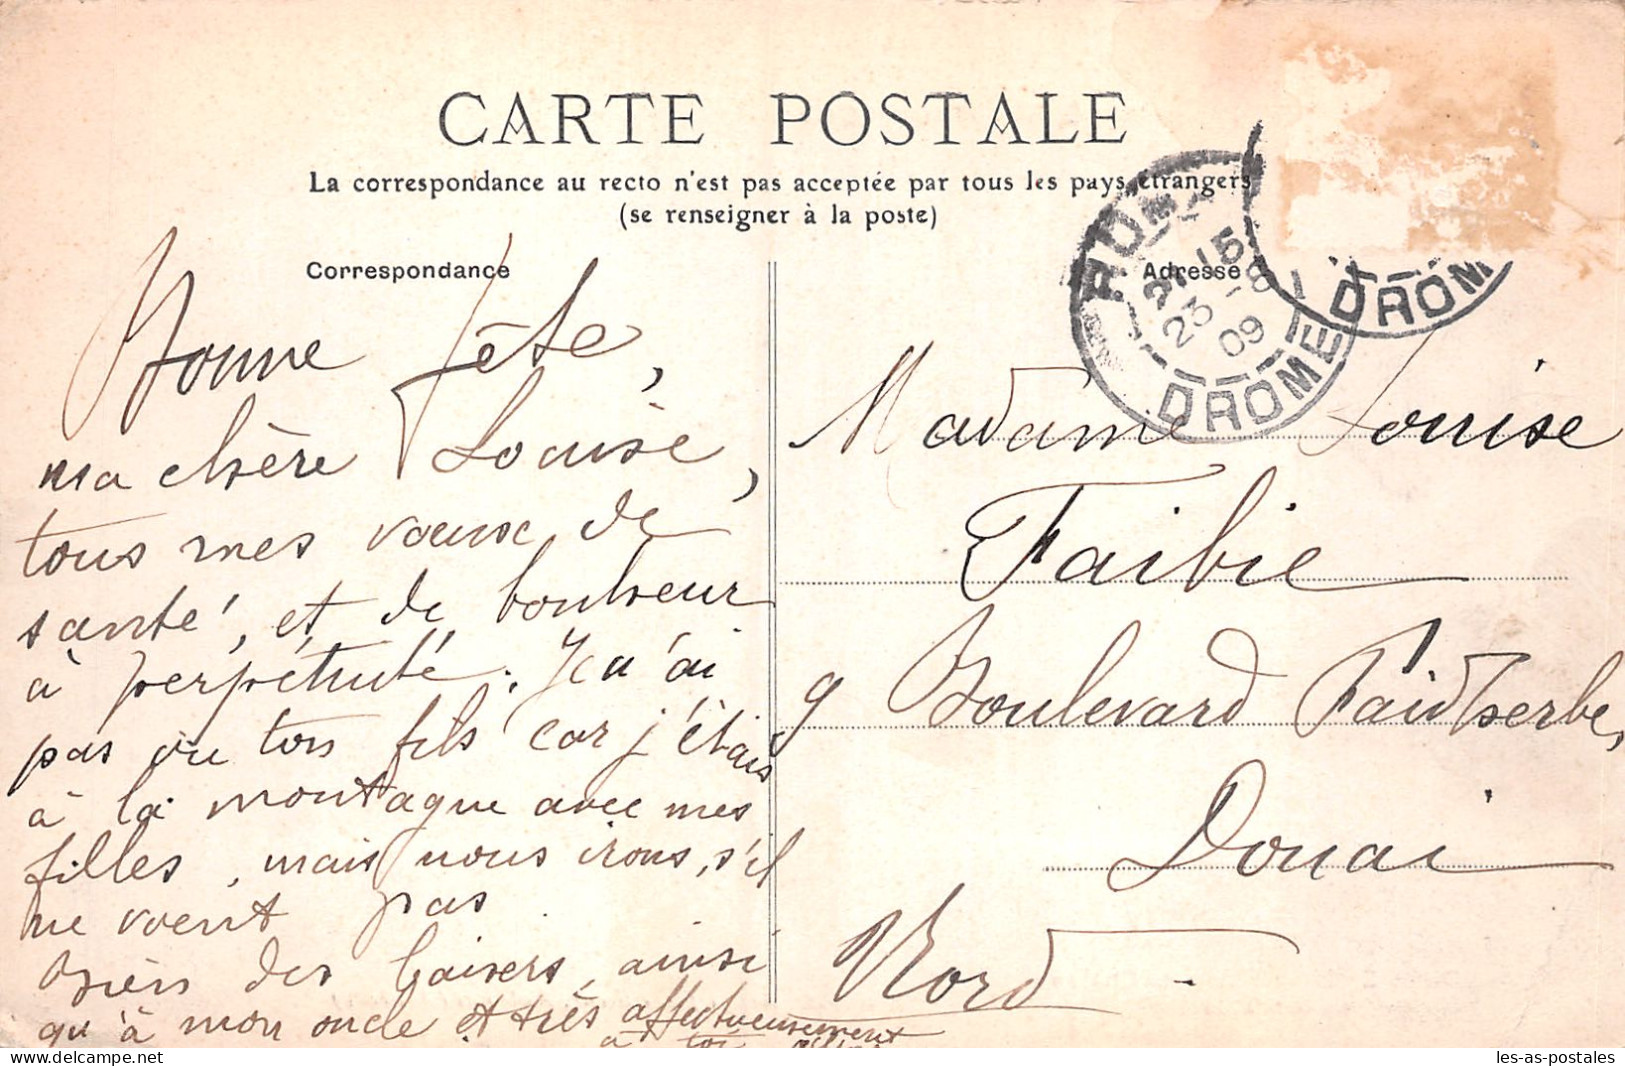 CARTE POSTALE
La correspondance au recto n'est pas acceptée par tous les pays étrangers
(se renseigner à la poste)
Correspondance
Bonne fête,
ma chère Louise,
tous mes vœux de
santé, et de bonheur
à perpétuité. Je n'ai
pas vu ton fils car j'étais
à la montagne avec mes
filles, mais nous irons, s'il
ne vient pas
Bien des baisers, ainsi
qu'à mon oncle et très affectueusement
à toi
Adresse
21 15
23 - 8
09
DROME
DROME
Madame Louise
Faibie
9 Boulevard Faidherbe,
Douai
Nord
les-as-postales